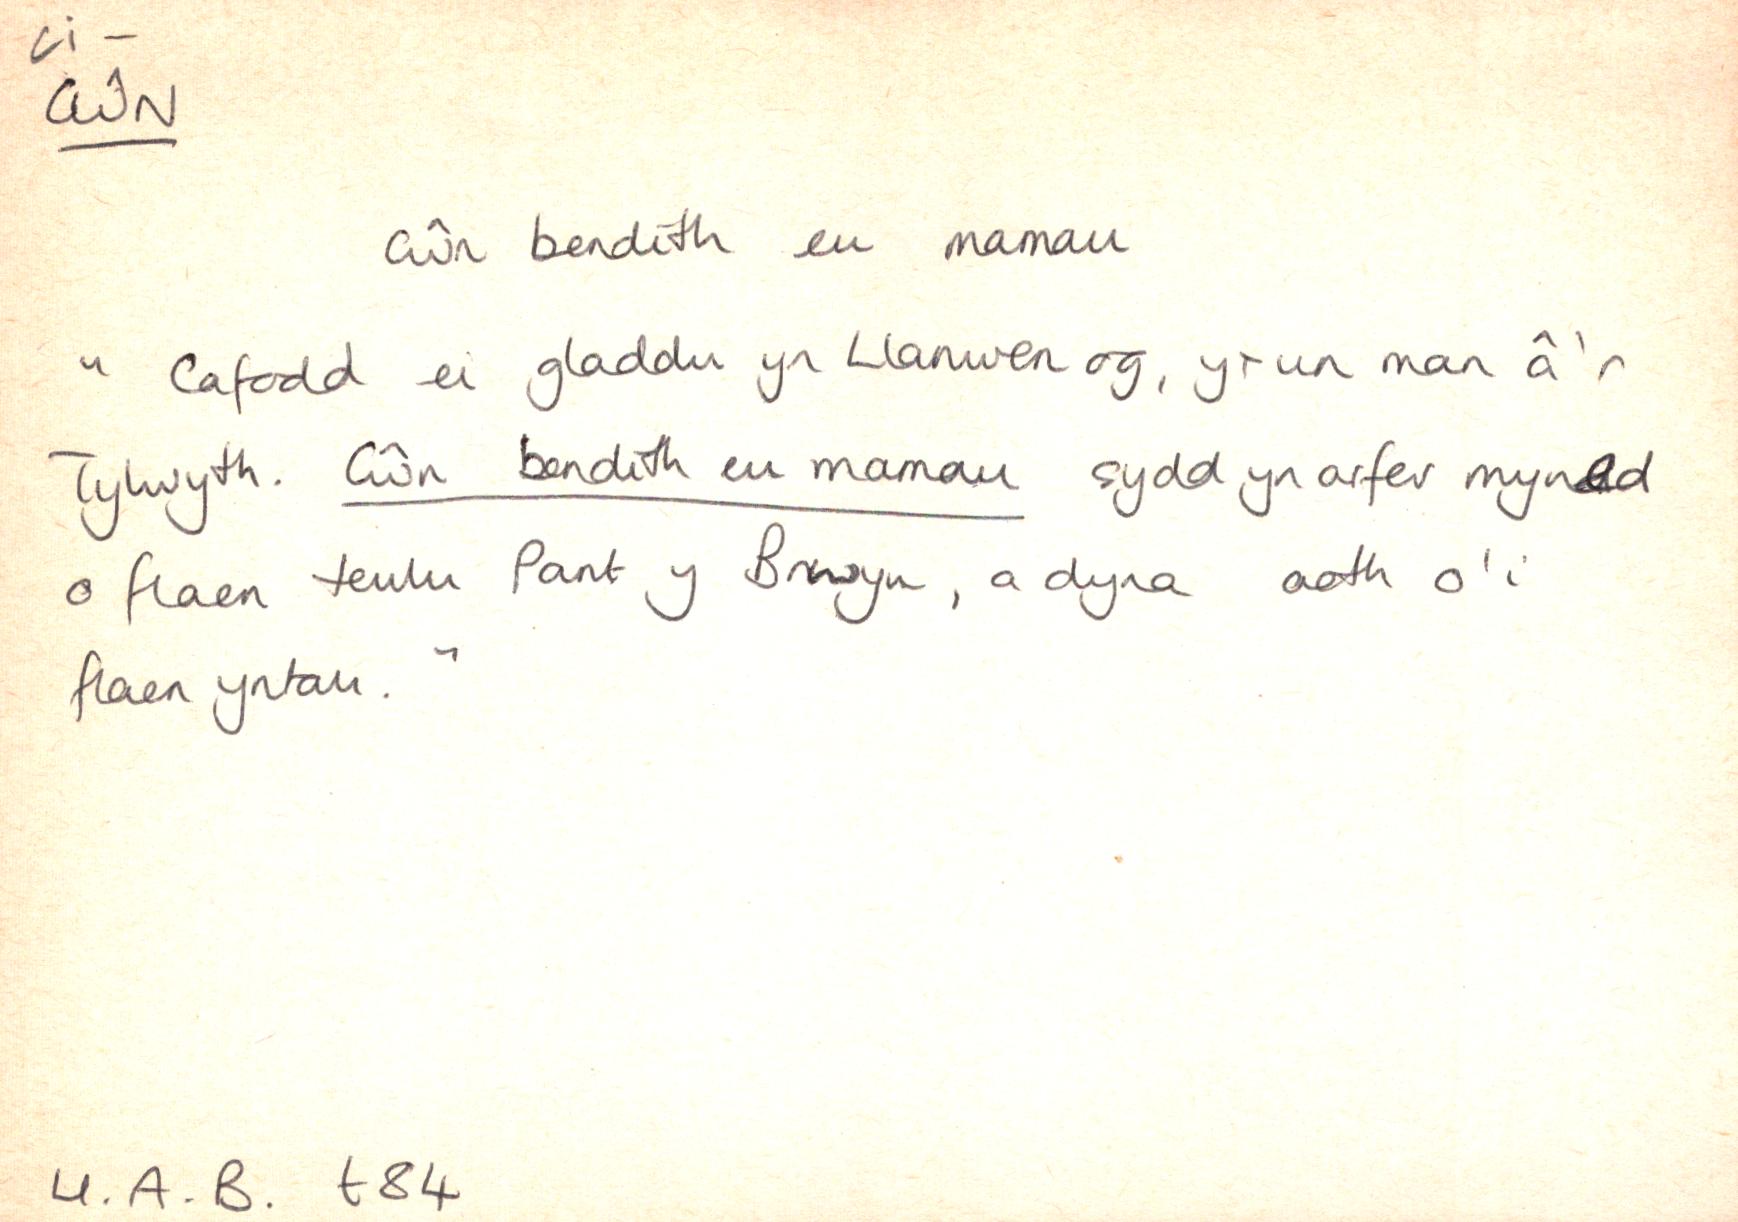 ci -
CŴN
Cŵn bendith eu mamau
" Cafodd ei gladdu yn Llanwenog, yr un man â'r
Tylwyth. Cŵn bendith eu mamau sydd yn arfer myned
o flaen teulu Pant y Brwyn, a dyna aeth o'i
flaen yntau. "
Ll. A. B. t84